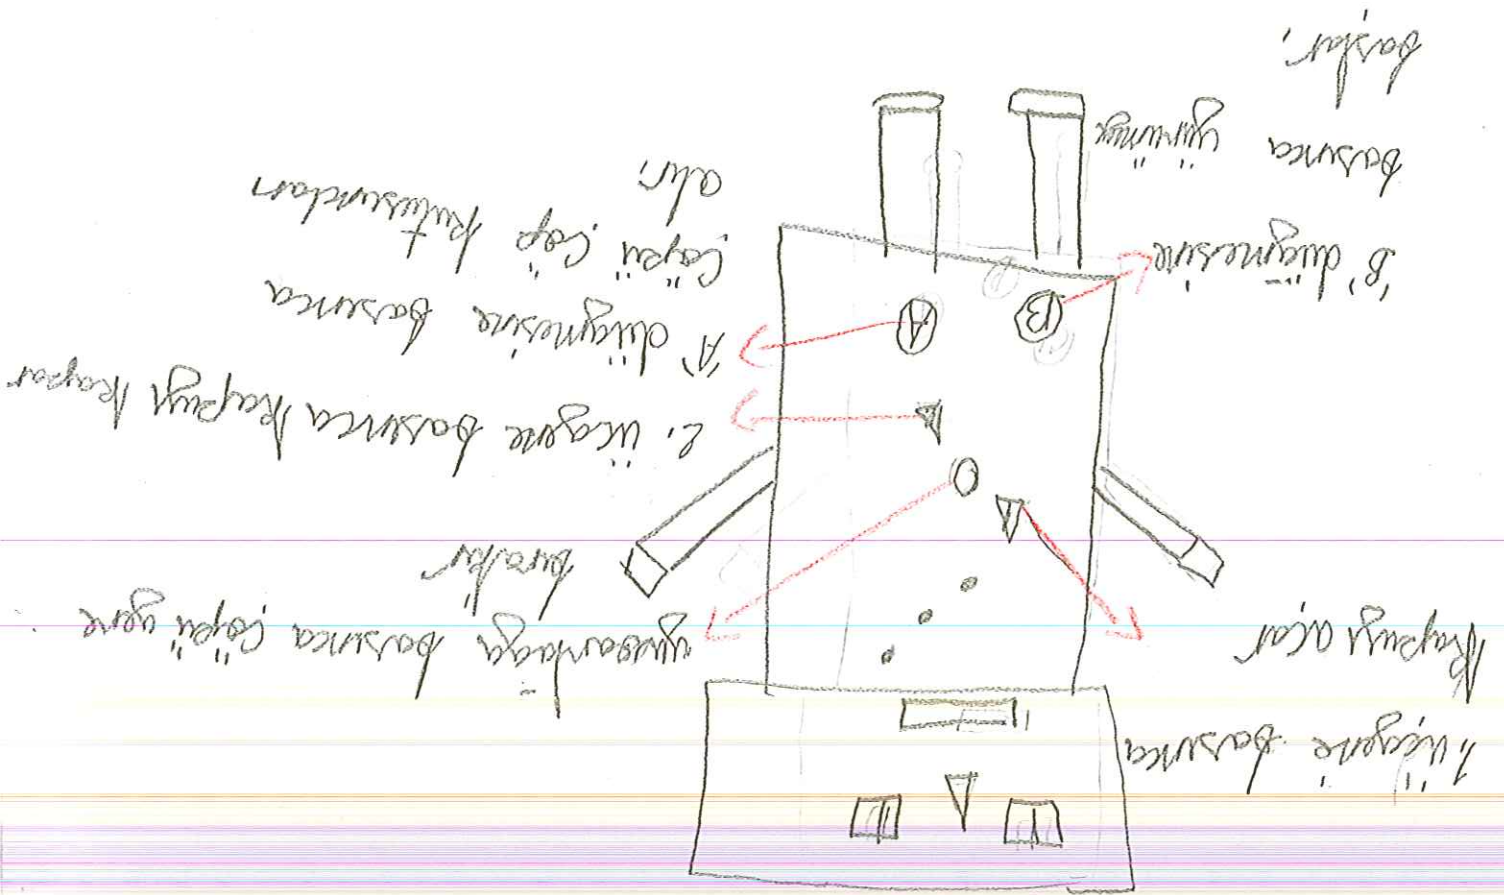 1. üçgene basınca
kapuyı açar
yuvarlağa basınca çöpü yere
bırakır
2. üçgene basınca kapuyı kapar
"A" düğmesine basınca
çöpü çöp kutusundan
alır.
"B" düğmesine
basınca yürümeye
başlar.
A
B